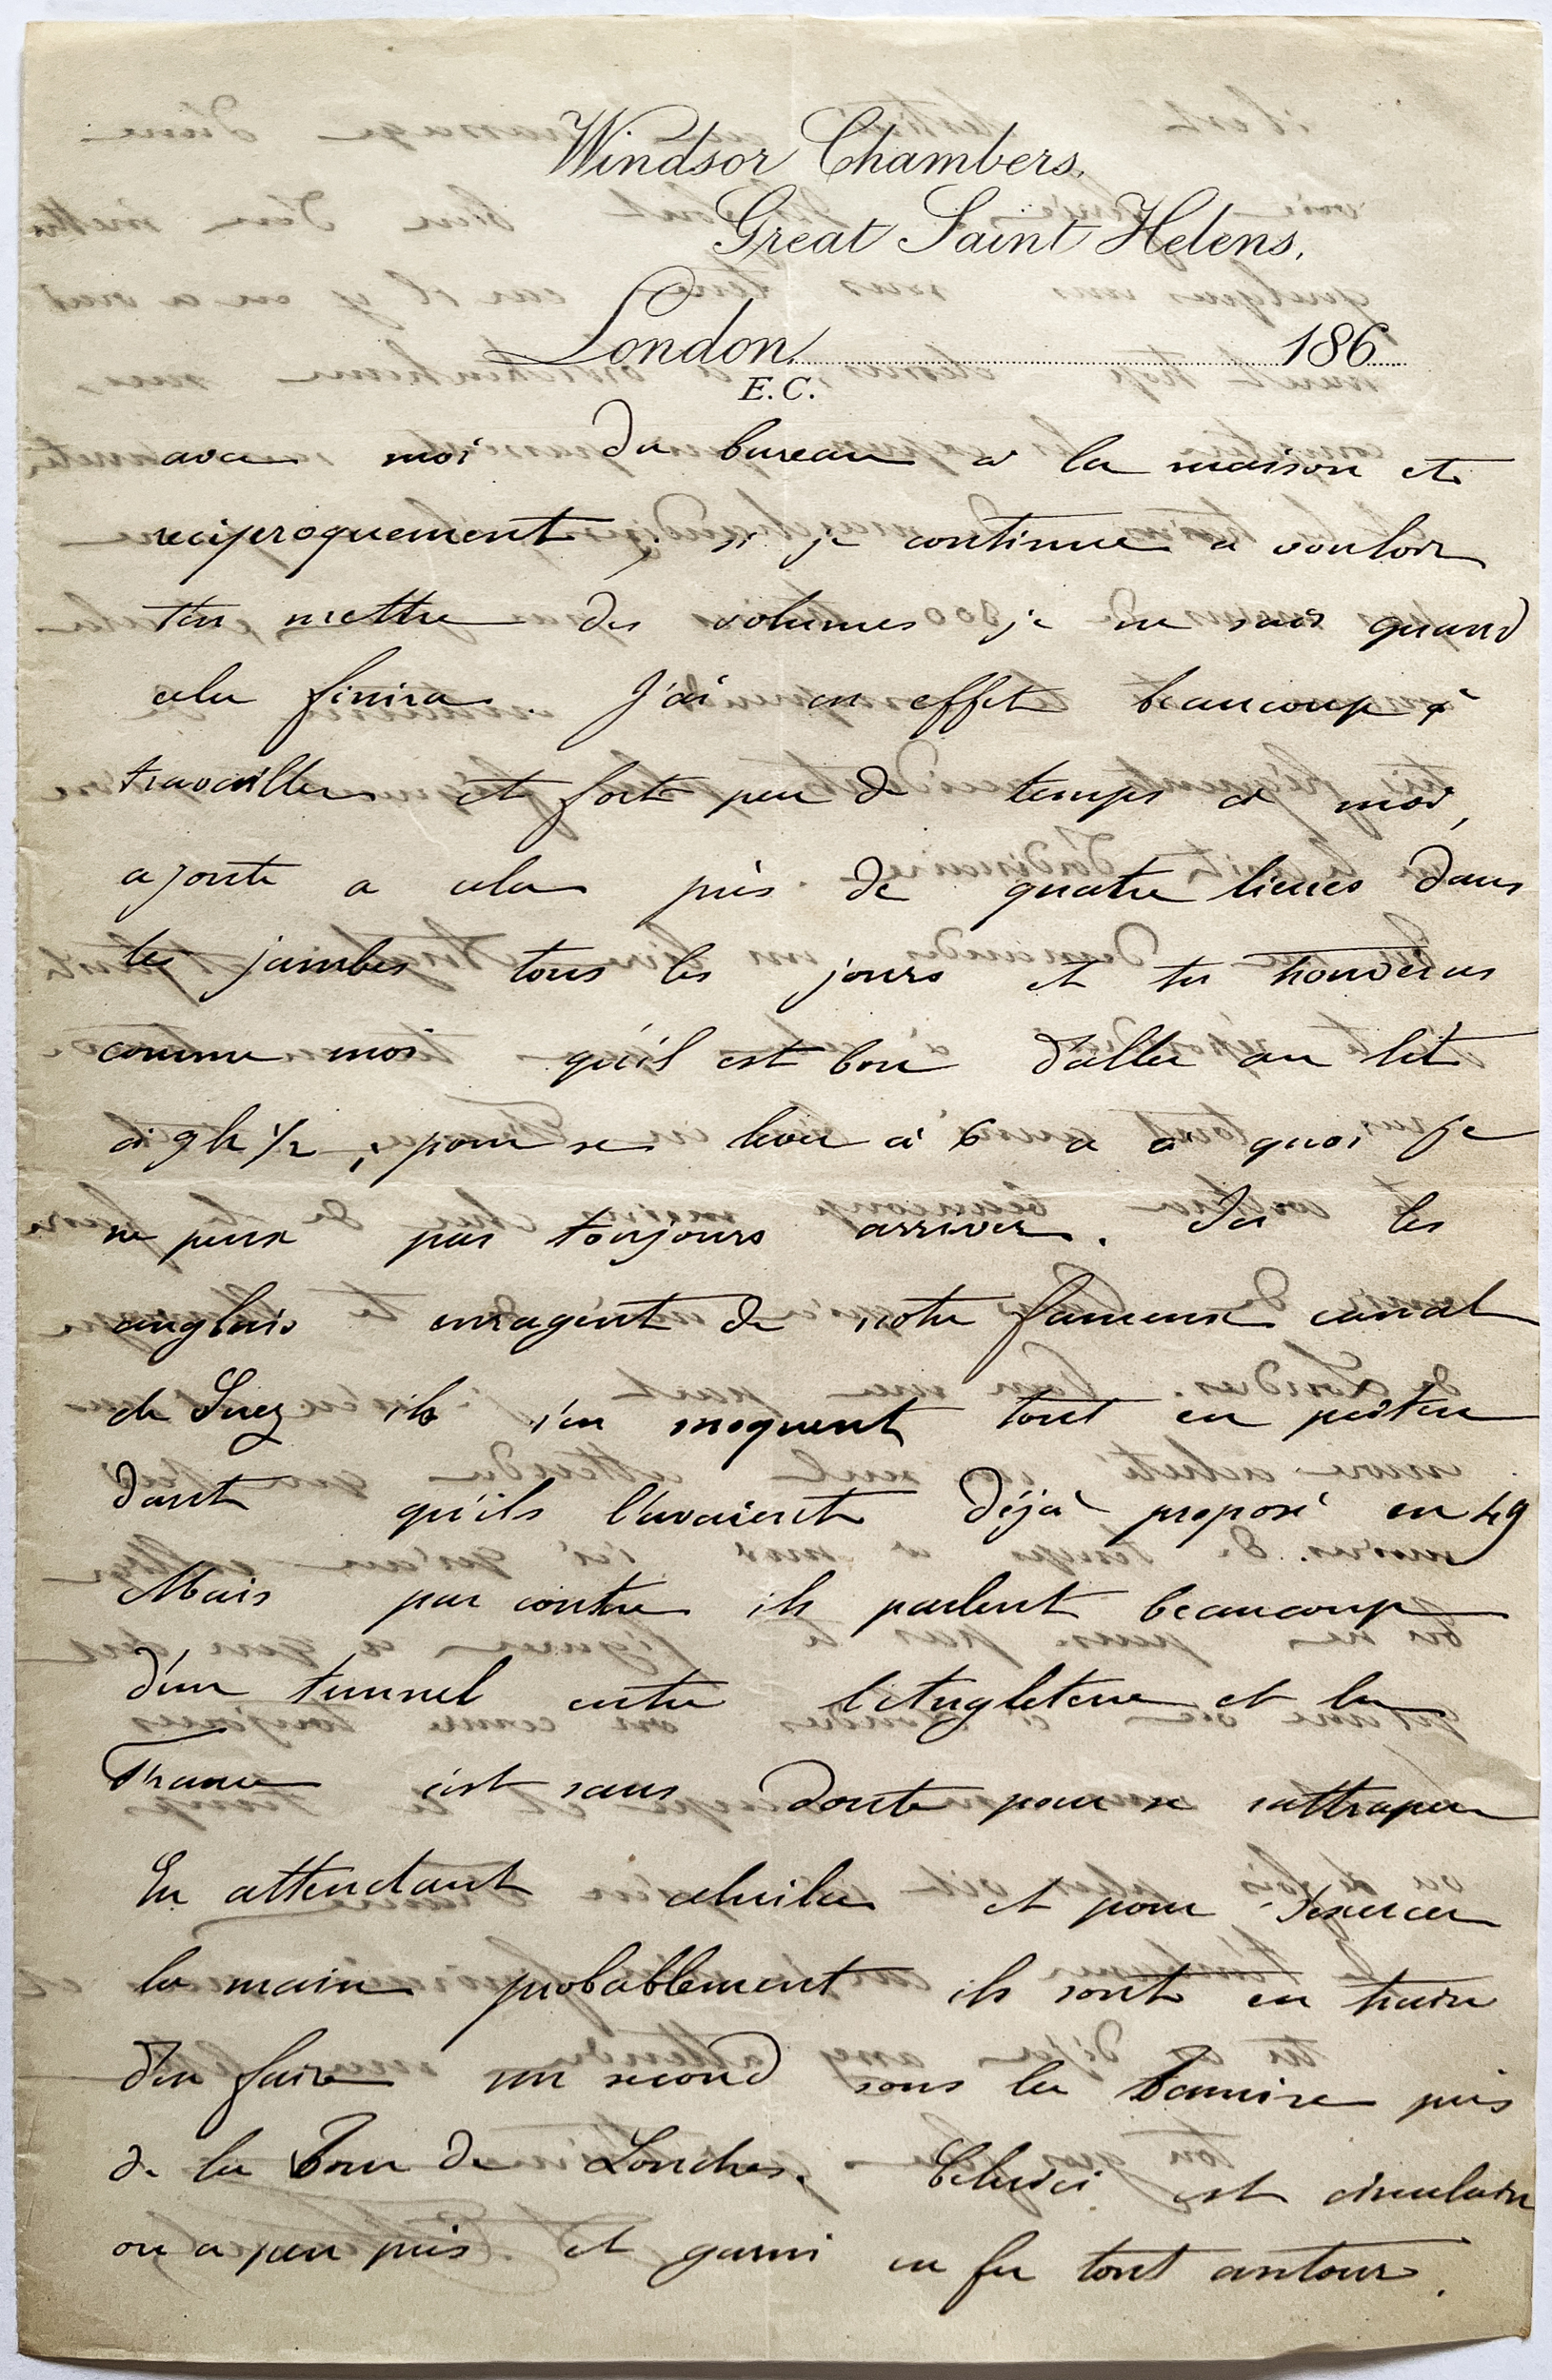 Windsor Chambers,
Great Saint Helens,
London 186
E.C.
avec moi du bureau a la maison et
reciproquement, si je continue a vouloir
t'en mettre des volumes je ne sais quand
cela finira. J'ai en effet beaucoup à
travailler et fort peu de temps a moi,
ajoute a cela près de quatre lieues dans
les jambes tous les jours et tu trouveras
comme moi qu'il est bon d'aller au lit
à 9h 1/2, pour se lever à 6 a quoi je
ne peux pas toujours arriver. Ici les
anglais enragent de notre fameux canal
de Suez ils s'en moquent tout en préten
dant qu'ils l'avaient déjà proposé en 49
Mais par contre ils parlent beaucoup
d'un tunnel entre l'Angleterre et la
France c'est sans doute pour se rattraper
En attendant celui la et pour s'exercer
la main probablement ils sont en train
d'en faire un second sous la Tamise près
de la Tour de Londres. Celui ci est circulaire
ou a peu près et garni en fer tout autour.